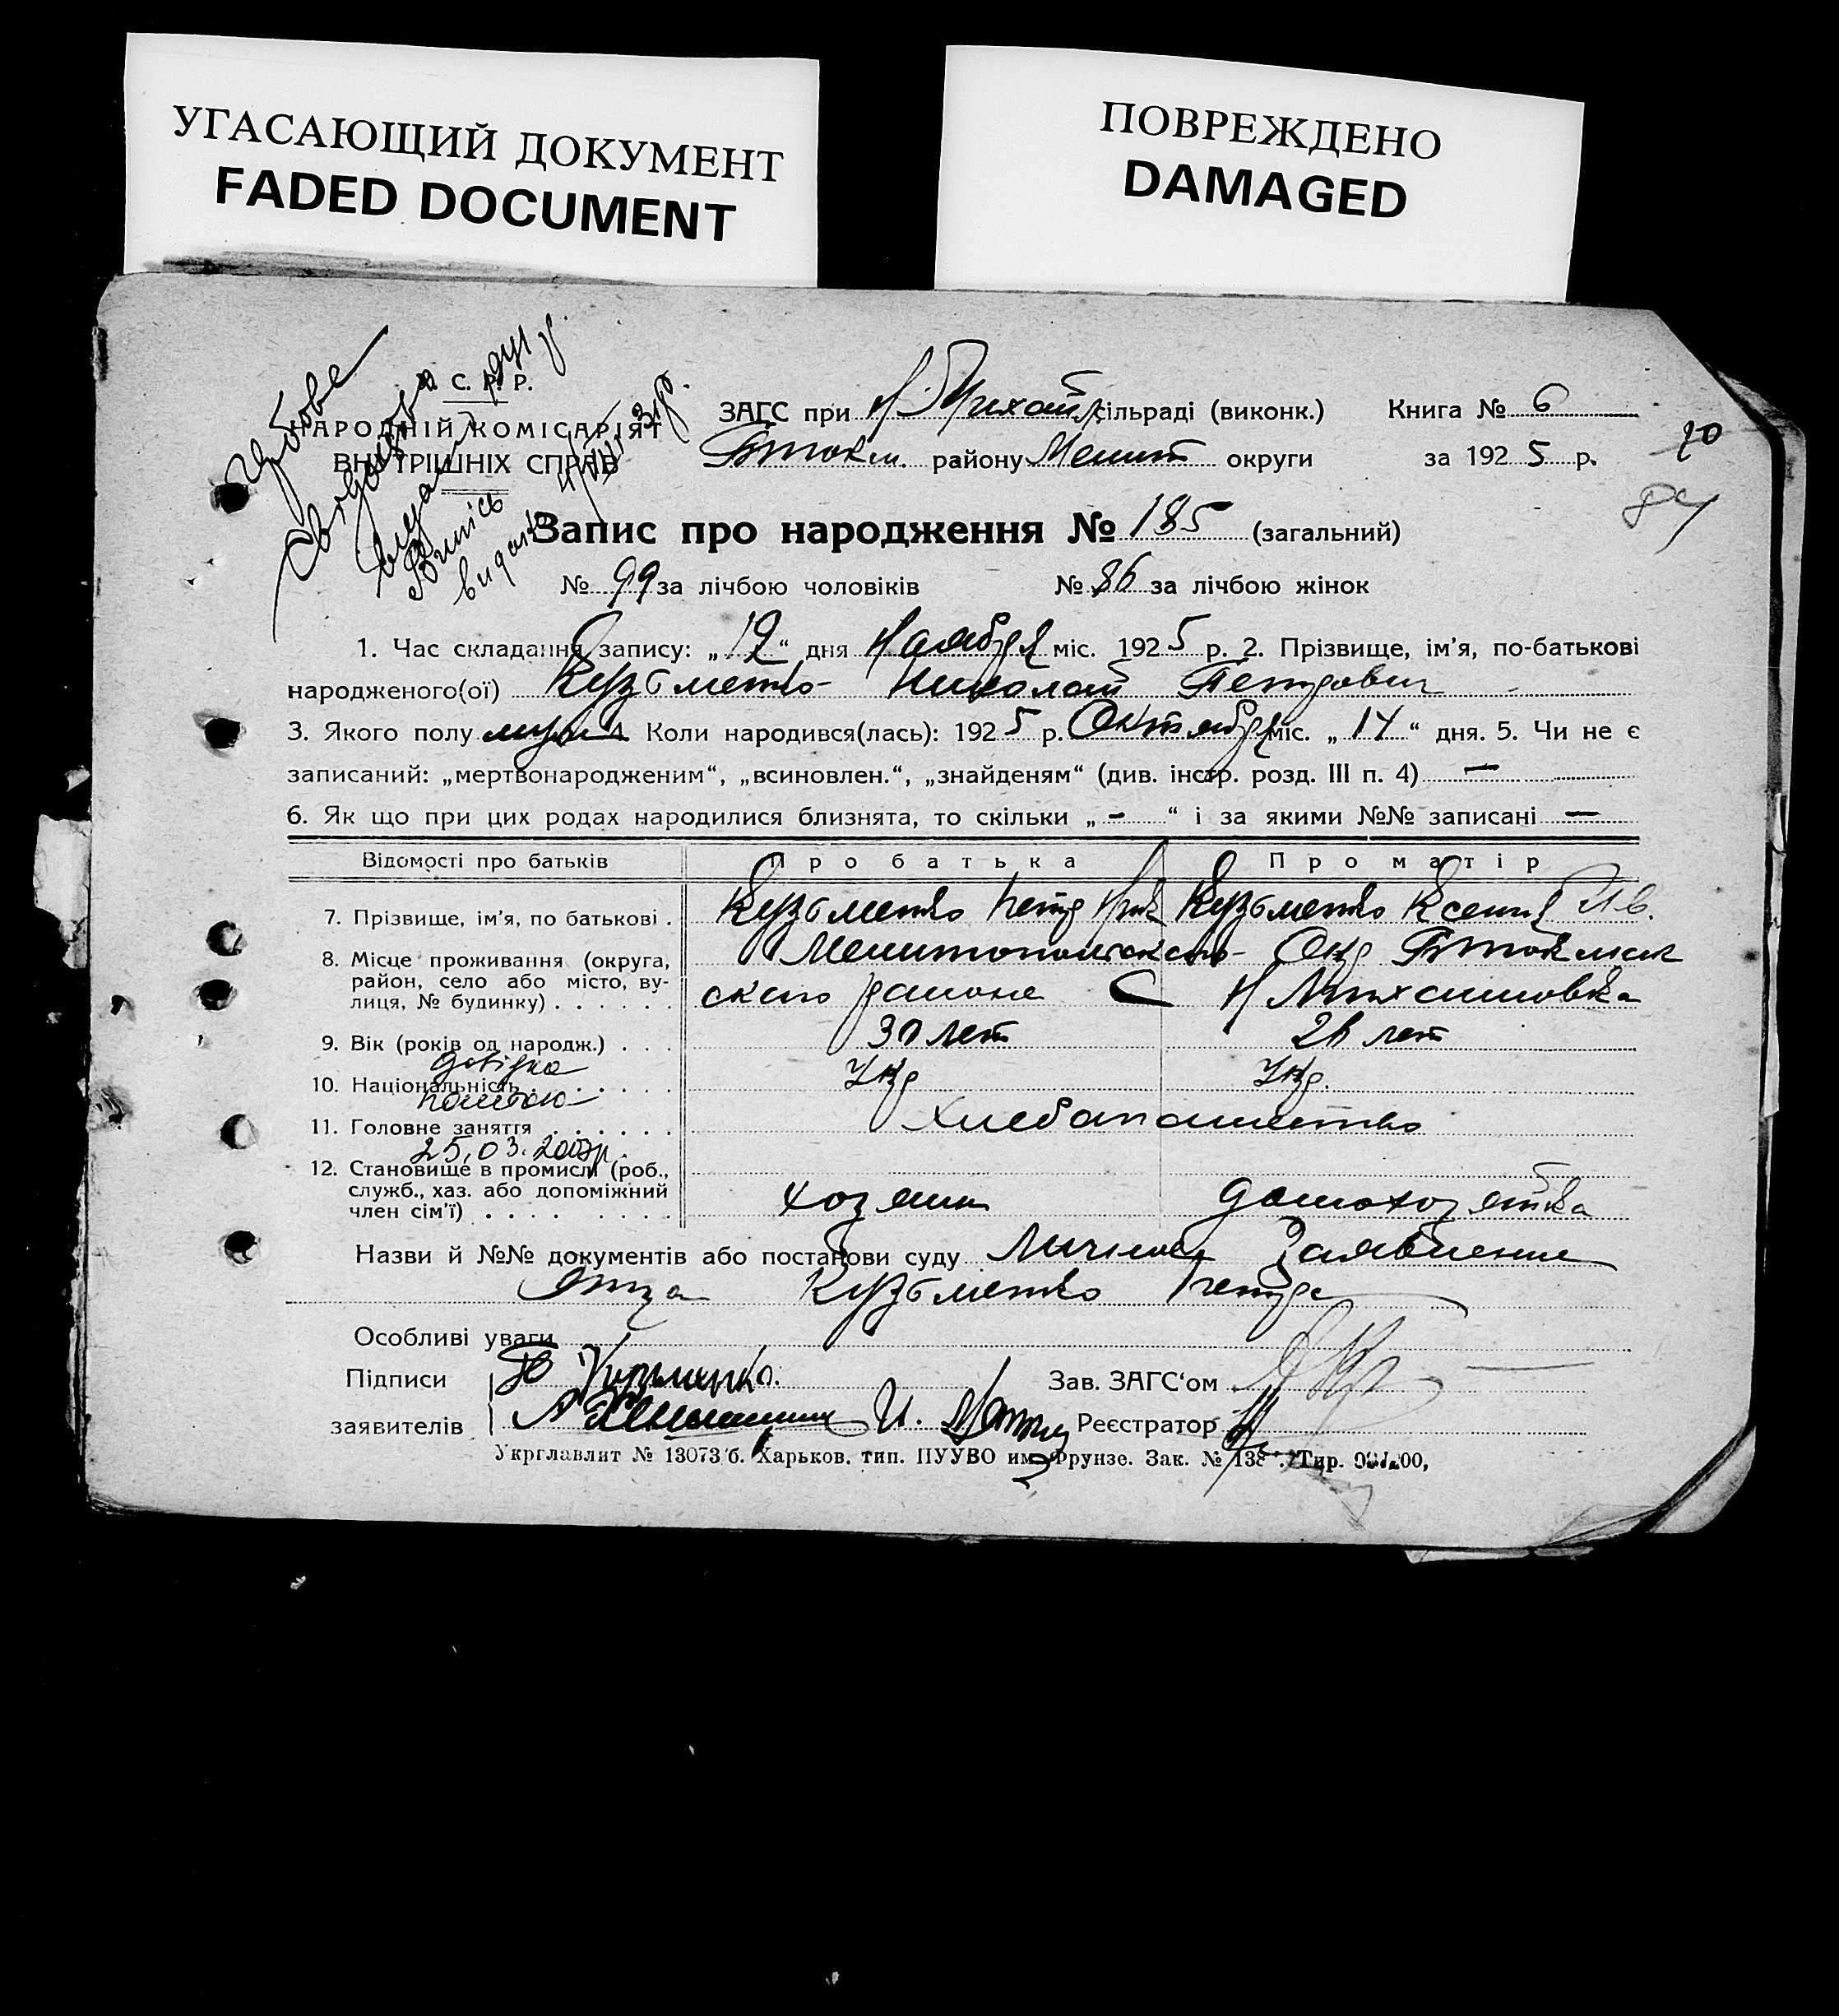 УГАСАЮЩИЙ ДОКУМЕНТ
FADED DOCUMENT
ПОВРЕЖДЕНО
DAMAGED
У. С. Р. Р.
НАРОДНІЙ КОМІСАРІЯТ
ВНУТРІШНІХ СПРАВ
Грубове
1941 р.
Випись
видано
ЗАГС при Н. Михайл. сільраді (виконк.) Книга № 6
Бтокм. району Мелит округи за 1925 р.
70
84
Запис про народження № 185 (загальний)
№ 99 за лічбою чоловіків № 86 за лічбою жінок
1. Час складання запису: „12“ дня Ноября міс. 1925 р. 2. Прізвище, ім’я, по-батькові
народженого(ої) Кузьменко Николай Петрович
3. Якого полу муж 4. Коли народився(лась): 1925 р. Октября міс. „14“ дня. 5. Чи не є
записаний: „мертвонародженим“, „всиновлен.“, „знайденям“ (див. інстр. розд. III п. 4) —
6. Як що при цих родах народилися близнята, то скільки „-“ і за якими №№ записані —
Відомості про батьків Про батька Про матір
7. Прізвище, ім’я, по батькові . Кузьменко Петр Кузьменко Ксения Ив.
8. Місце проживання (округа, Мелитопольского Окр Бтокмак
район, село або місто, ву-
лиця, № будинку) . . . . . . ского района С Н Михайловка
9. Вік (років од народж.) . . . 30 лет 26 лет
довідка
10. Національність . . . . . . . Укр Укр.
поштою
11. Головне заняття . . . . . . Хлебопашество
25.03.2003р.
12. Становище в промислі (роб.,
служб., хаз. або допоміжний хозяин домохозяйка
член сім’ї) . . . . . . . . .
Назви й №№ документів або постанови суду Личное Заявление
Отца Кузьменко Петра
Особливі уваги
Підписи Кузьменко. Зав. ЗАГС‘ом
заявителів И. Реєстратор
Укрглавлит № 13073 б. Харьков. тип. ПУУВО им. Фрунзе. Зак. № 138 Тир.